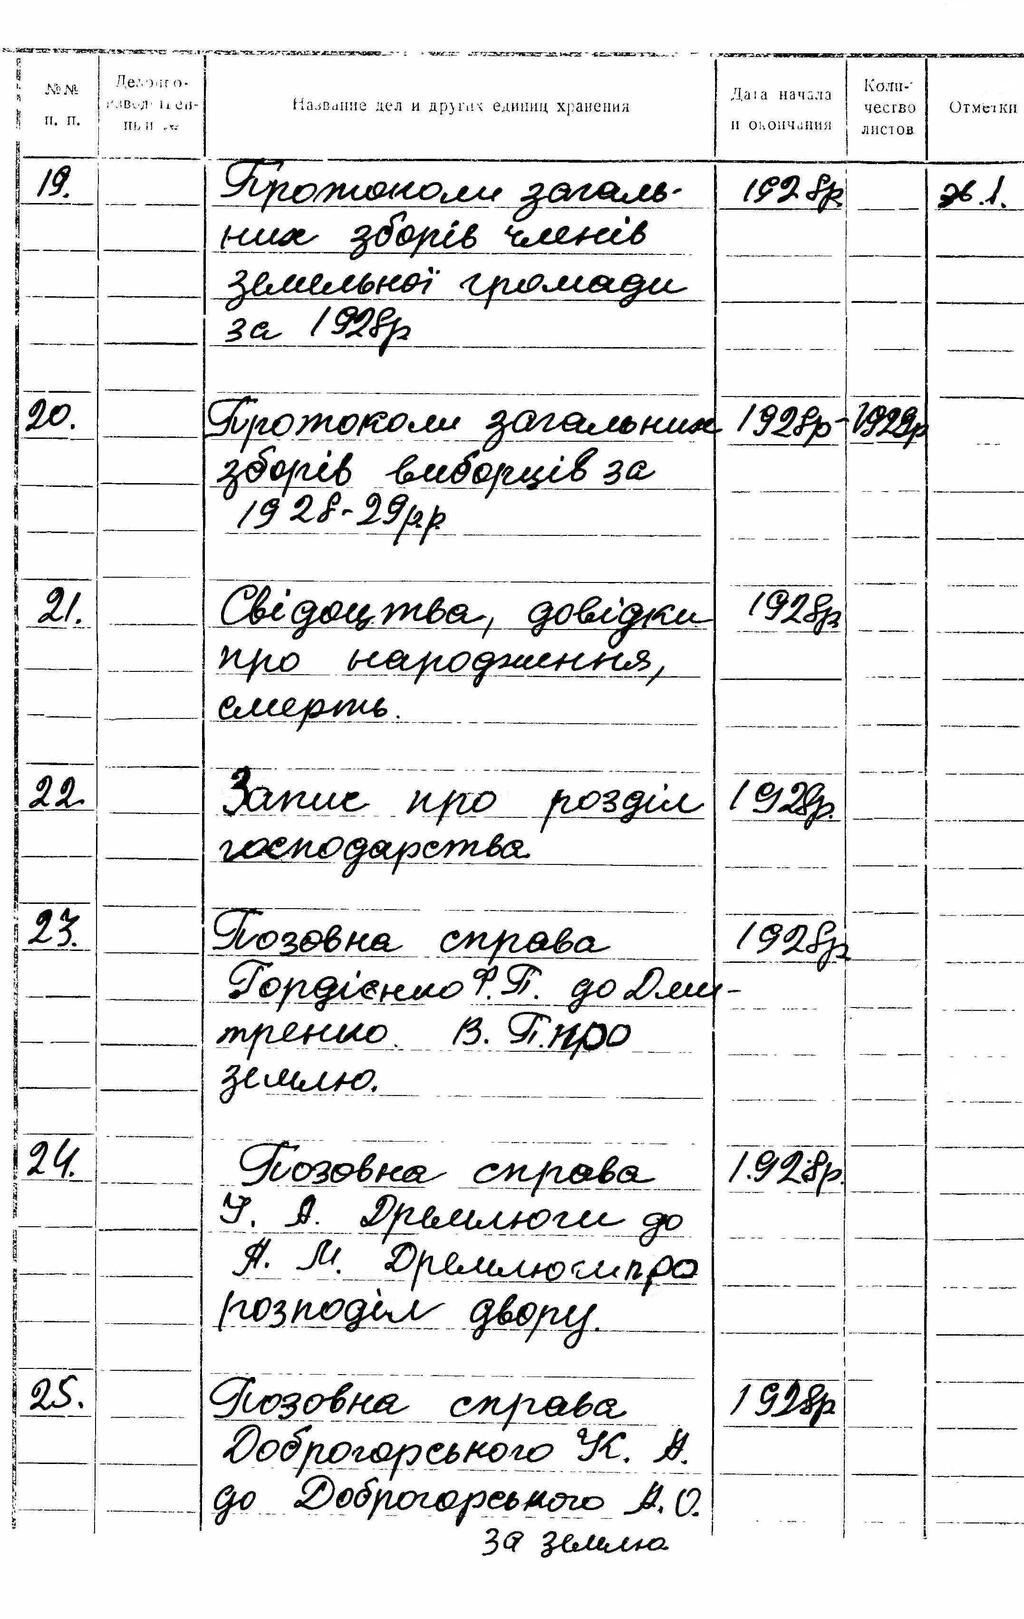 №№ п. п.
Название дел и других единиц хранения
Дата начала и окончания
Коли-
чество
листов
Отметки
19.
Протоколи загаль-
1928р.
них зборів членів
земельної громади
за 1928р
20.
Протоколи загальних
1928р-1929р
зборів виборців за
1928-29р.р.
21.
Свідоцтва, довідки
1928р.
про народження,
смерть.
22.
Запис про розділ
1928р.
господарства
23.
Позовна справа
1928р.
Гордієнко Ф.П. до Дми-
тренко В. П. про
землю.
24.
Позовна справа
1928р.
А. Дремлюги до
А. М. Дремлюги про
розподіл двору.
25.
Позовна справа
1928р
Доброгорського К. А.
до Доброгорського А. О.
за землю